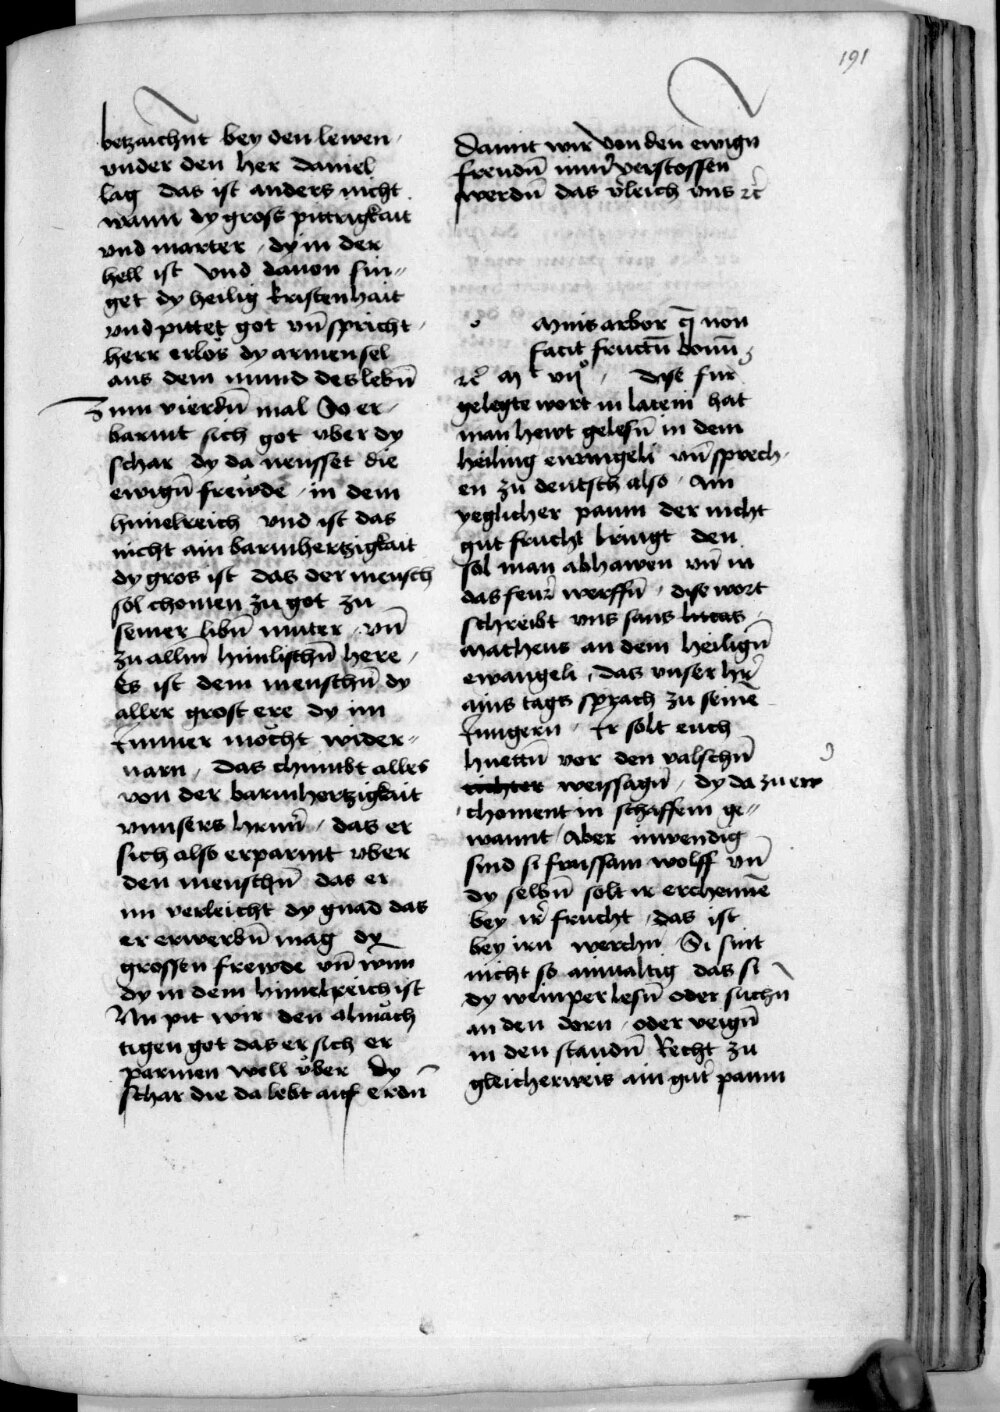 191
betzaichnt bey den lewen
vnder den her daniel
lag das ist anders nicht
wann dy gross pittrigkait
vnd marter / dy in der
hell ist vnd dauon sin
get dy heilig kristenhait
vnd pittet got vn̄ spricht
herr erlos dy armen sel
aus dem mund des lebn̄
Zum vierdn̄ mal So er
barmt sich got vber dy
schar dy da neusset die
ewign̄ frewde / in dem
himelreich vnd ist das
nicht ain barmhertzigkait
dy gros ist das der mensch
sol chomen zu got zu
seiner libn̄ muter / vn̄
zu alln̄ himlischn̄ here /
Es ist dem menschn̄ dy
aller grost ere dy im
ymmer möcht wider
uarn / das chumbt alles
von der barmhertzigkait
vnnsers hern̄ / das er
sich also erparmt vber
den menschn̄ das er
im verleicht dy gnad das
er erwerbn̄ mag dy
grossen frewde vn̄ wun
dy in dem himelreich ist
Nu pit wir den almäch
tigen got das er sich er
parmen well vber dy
schar die da lebt auf erdn̄
Damit wir von den ewign̄
freudn̄ imm̄er verstossen
werdn̄ das verleich vns ꝛc̄
mnis arbor q̄ non
facit fructū bonū
ꝛc̄ Mt vijo / dise fur
gelegte wort in latein hat
man hewt gelesn̄ in dem
heiling ewangeli vn̄ sprech
en zu deutsch also / Ain
yeglicher paum der nicht
gut frucht bringt den
sol man abhawen vn̄ in
das feur̄ werffn̄ / dise wort
schreibt vns sans lucas
Matheus an dem heilign̄
ewangeli / das vnser hr̄
ains tags sprach zu seinē
Iungern / Er solt euch
huettn̄ vor den valschn̄
richter weissagn̄ / dy da zu ew
choment in schaffein ge
wannt / Aber inwendig
sind si fraissam wolff vn̄
dy selbn̄ solt ir erchennē
bey ir̄ frucht / das ist
bey irn werchn / Si sint
nicht so ainualtig das si
dy weinper lesn̄ oder suchn
an den dorn / oder veign̄
in den staudn̄ Recht zu
gleicherweis ain gut̄ paum